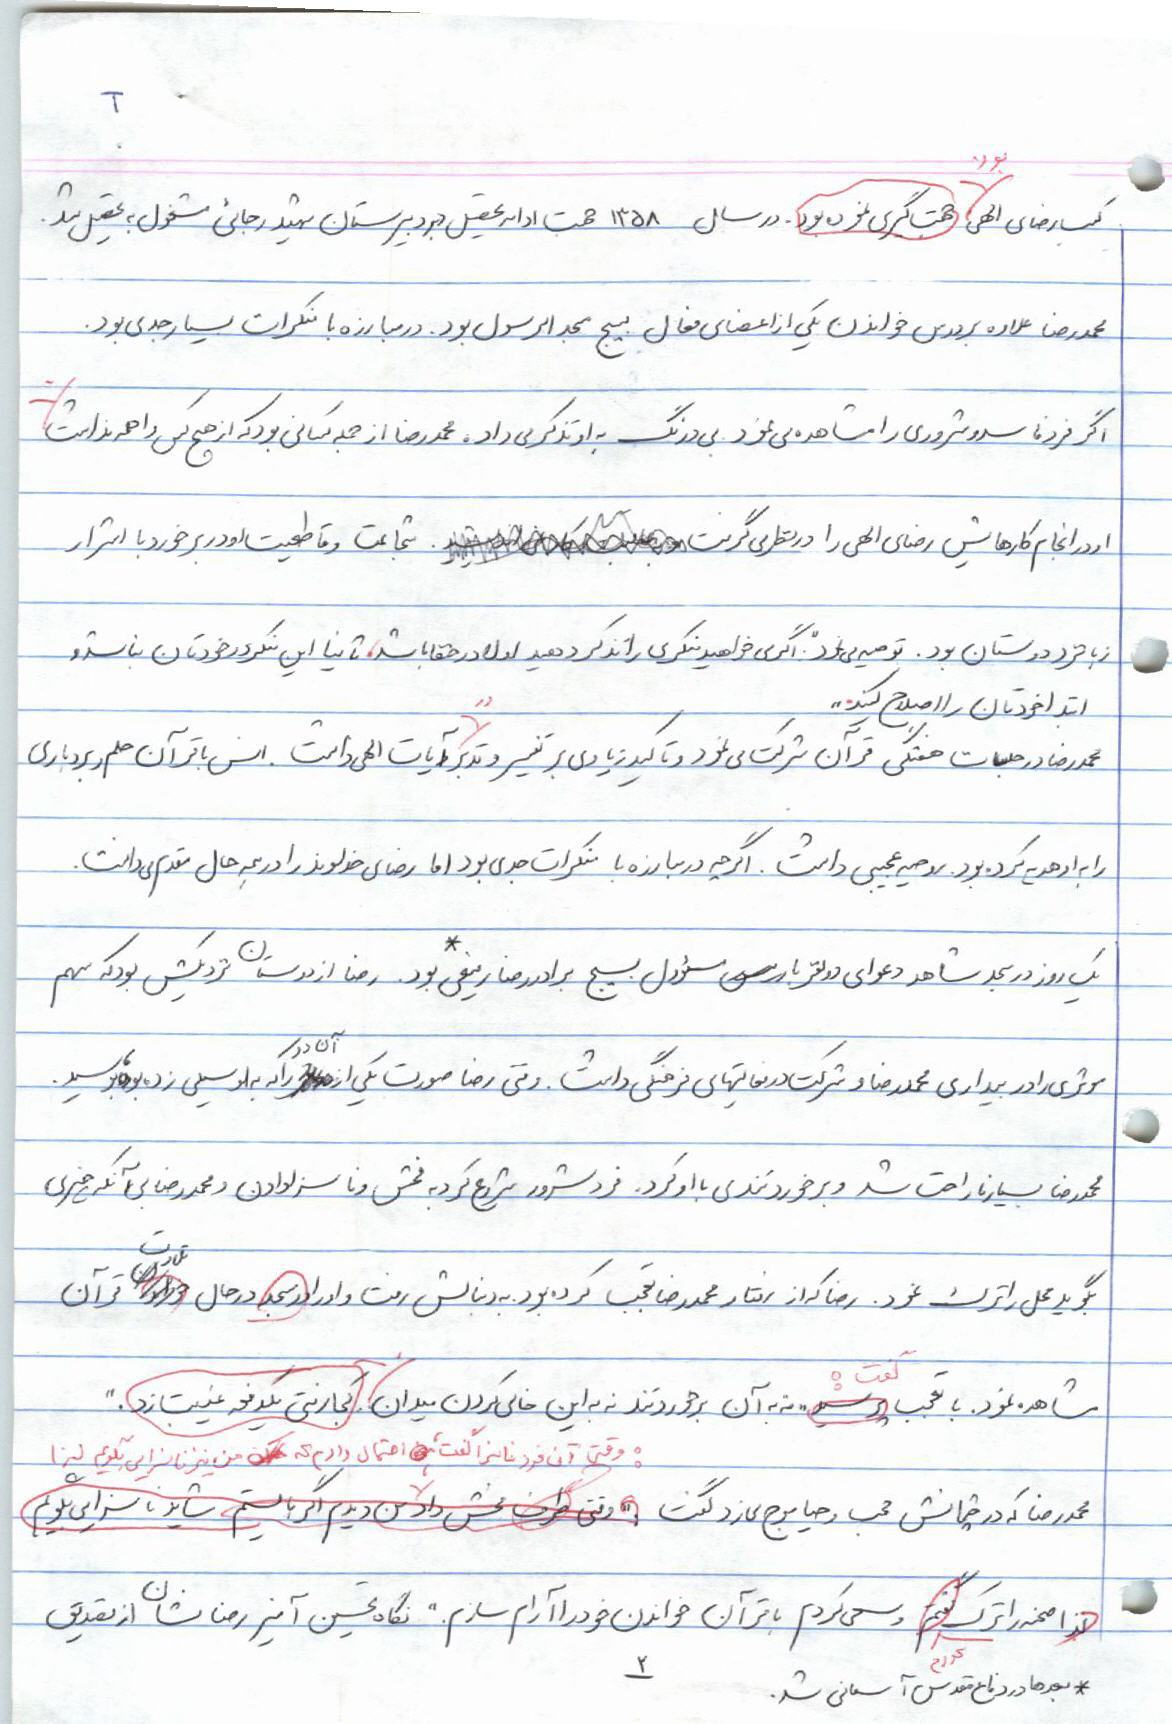 بود.
کسب رضای الهی جهت گیری نموده بود. در سال ۱۳۵۸ جهت ادامه تحصیل در دبیرستان شهید رجائی مشغول به تحصیل شد.
محمدرضا علاوه بر درس خواندن یکی از اعضای فعال بسیج مسجد الرسول بود. در مبارزه با منکرات بسیار جدی بود.
اگر فرد فاسد و شروری را مشاهده می نمود بی درنگ به او تذکر می داد. محمدرضا از جمله کسانی بود که از هیچ کس واهمه نداشت
او در انجام کارهایش رضای الهی را در نظر می گرفت . شجاعت و قاطعیت او در برخورد با اشرار
زبانزد دوستان بود. توصیه می نمود: اگر می خواهید منکری را تذکر دهید اولا در خفا باشد، ثانیا این منکر در خودتان نباشد و
ابتدا خودتان را اصلاح کنید."
در
محمدرضا در جلسات هفتگی قرآن شرکت می نمود و تاکید زیادی بر تفسیر و تدبر آیات الهی داشت. انس با قرآن حلم و بردباری
را به او هدیه کرده بود. روحیه عجیبی داشت. اگر چه در مبارزه با منکرات جدی بود اما رضای خداوند را در همه حال مقدم می دانست.
یک روز در مسجد شاهد دعوای دو نفر با مسؤول بسیج برادر رضا رینقی* بود. رضا از دوستان نزدیکش بود که سهم
موثری را در بیداری محمدرضا و شرکت در فعالیتهای فرهنگی داشت. وقتی رضا صورت یکی از آن دو را که به او سیلی زده بود بوسید.
محمدرضا بسیار ناراحت شد و برخورد تندی با او کرد. فرد شرور شروع کرد به فحش و ناسزا دادن و محمدرضا بی آنکه چیزی
بگوید محل را ترک نمود. رضا که از رفتار محمدرضا تعجب کرده بود. به دنبالش رفت و او را در مسجد در حال تلاوت قرآن
گفت:
مشاهده نمود. با تعجب پرسید "نه به آن برخوردتند نه به این خالی کردن میدان! کجا رفتی یکدفعه غیبت زد."
: وقتی آن فرد ناسزا گفت احتمال دادم که من نیز ناسزایی بگویم لذا
محمدرضا که در چشمانش حجب و حیا موج می زد گفت : "وقتی طرف فحش داد من دیدم اگر بایستم شاید ناسزایی بگویم
لذا صحنه را ترک گفتم و سعی کردم با قرآن خواندن خود را آرام سازم." نگاه تحسین آمیز رضا نشان از تصدیق
کردم
۲
* بعدها در دفاع مقدس آسمانی شد.